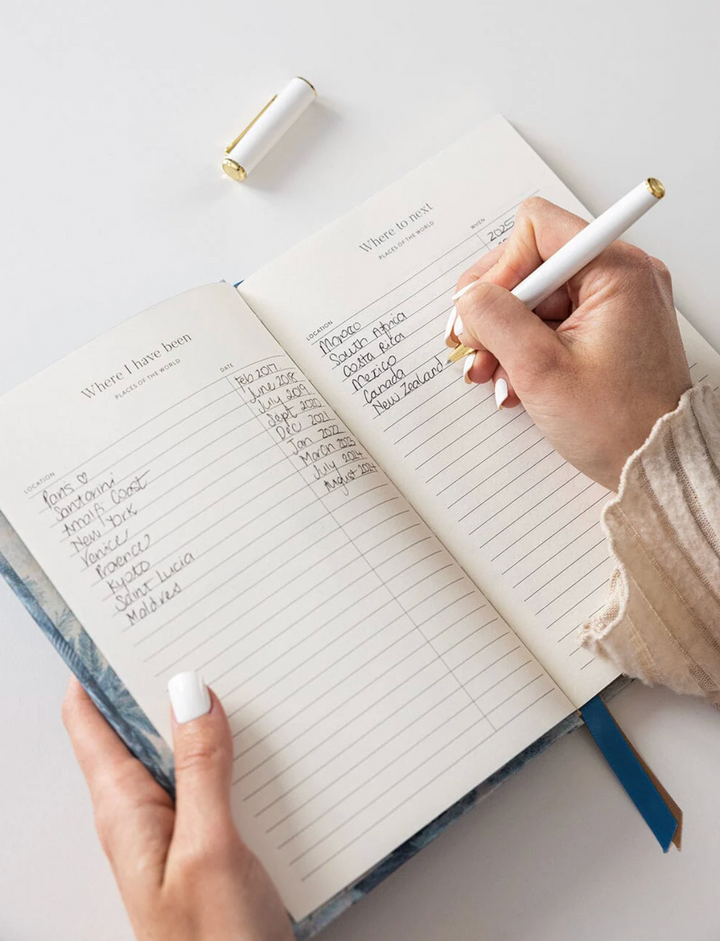 Where I have been
PLACES OF THE WORLD
LOCATION DATE
Paris ♡ Feb 2017
Santorini June 2018
Amalfi Coast July 2019
New York Sept 2020
Venice Dec 2021
Provence Jan 2022
Kyoto March 2023
Saint Lucia July 2024
Maldives August 2024
Where to next
PLACES OF THE WORLD
LOCATION WHEN
Morocco 2025
South Africa
Costa Rica
Mexico
Canada
New Zealand